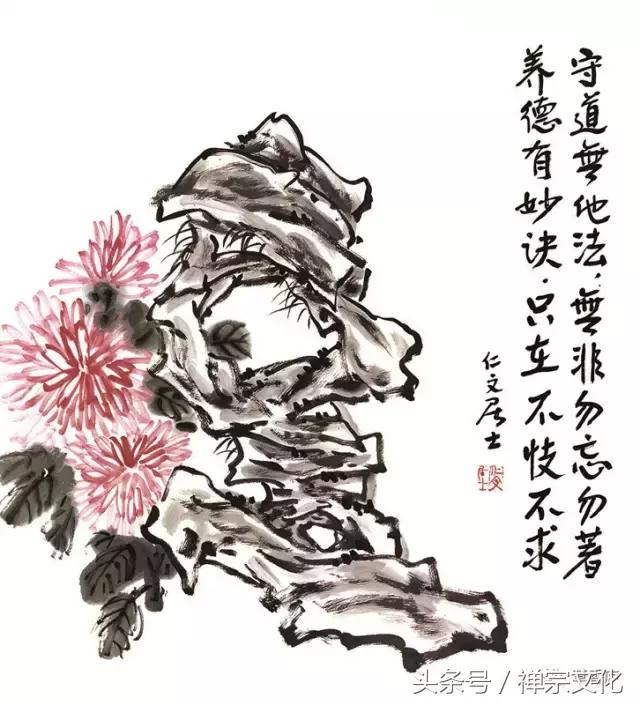 守道無他法，無非勿忘勿著
养德有妙诀，只在不忮不求
仁文居士
头条号／禅宗文化